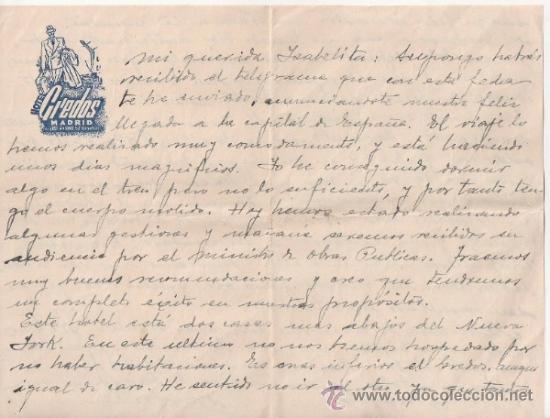 HOTEL
Gredos
MADRID
Mi querida Isabelita: Supongo habrás
recibido el telegrama que con esta fecha
te he enviado, anunciándote nuestra feliz
llegada a la capital de España. El viaje lo
hemos realizado muy comodamente, y está haciendo
unos días magnificos. Yo he conseguido dormir
algo en el tren pero no lo suficiente, y por tanto ten-
go el cuerpo molido. Hoy hemos estado realizando
algunas gestiones y mañana seremos recibidos en
audiencia por el ministro de Obras Publicas. Traemos
muy buenas recomendaciones y creo que tendremos
un completo exito en nuestros propósitos.
Este hotel está dos casas mas abajo del Nueva
York. En este ultimo no nos hemos hospedado por
no haber habitaciones. Es mas inferior el Gredos, aunque
igual de caro. He sentido no ir al otro
todocoleccion.net